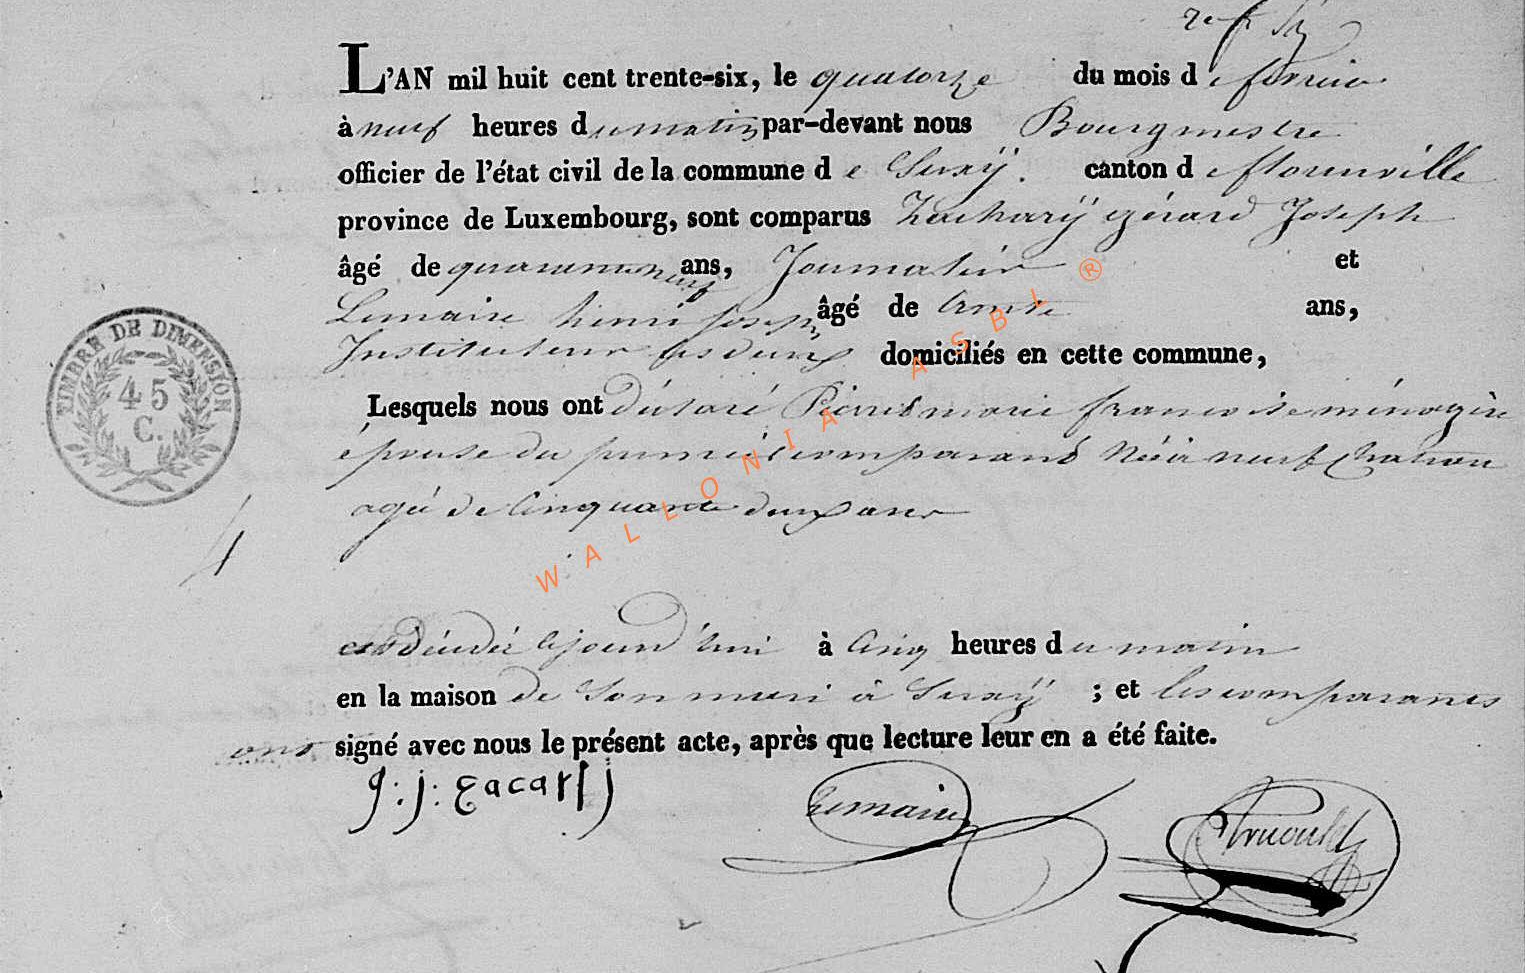 L'AN mil huit cent trente-six, le quatorze du mois de fevrier
à neuf heures du matin par-devant nous Bourgmestre
officier de l'état civil de la commune de Suxÿ. canton de florenville
province de Luxembourg, sont comparus Zacharÿ gérard Joseph
âgé de quarante neuf ans, Journalier et
Lemaire henri Joseph âgé de trente ans,
Instituteur les deux domiciliés en cette commune,
Lesquels nous ont déclaré Pierret marie francoise ménagère
épouse du premier comparant Née à neufchateau
agée de Cinquante deux ans
est décédée cejourd'hui à Cinq heures du matin
en la maison de Son mari à Suxÿ ; et les comparants
ont signé avec nous le présent acte, après que lecture leur en a été faite.
g: j: zacarij
Lemaire
TIMBRE DE DIMENSION
45
C.
4
WALLONIA ASBL ®